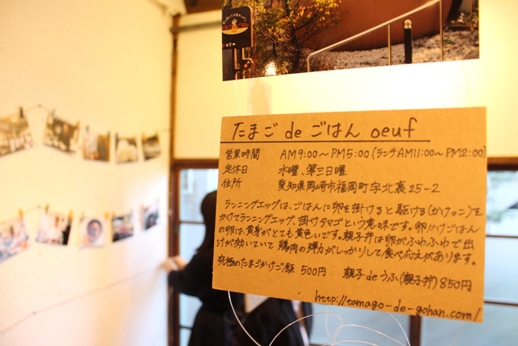 たまご de ごはん oeuf
営業時間 AM9:00〜PM5:00(ランチAM11:00〜PM2:00)
定休日 水曜、第三日曜
住所 愛知県岡崎市福岡町字北裏25-2
ランニングエッグは、ごはんに卵を掛けると駆ける(かけっこ)を
かけてランニングエッグ、掛けタマゴという意味です。卵かけごはん
の卵は、黄身がとても黄色いです。親子丼は卵がふわふわで出
汁が効いていて鶏肉の弾力がしっかりして食べ応えがあります。
究極のたまごかけご飯 500円 親子deうふ(親子丼)850円
http://tamago-de-gohan.com/